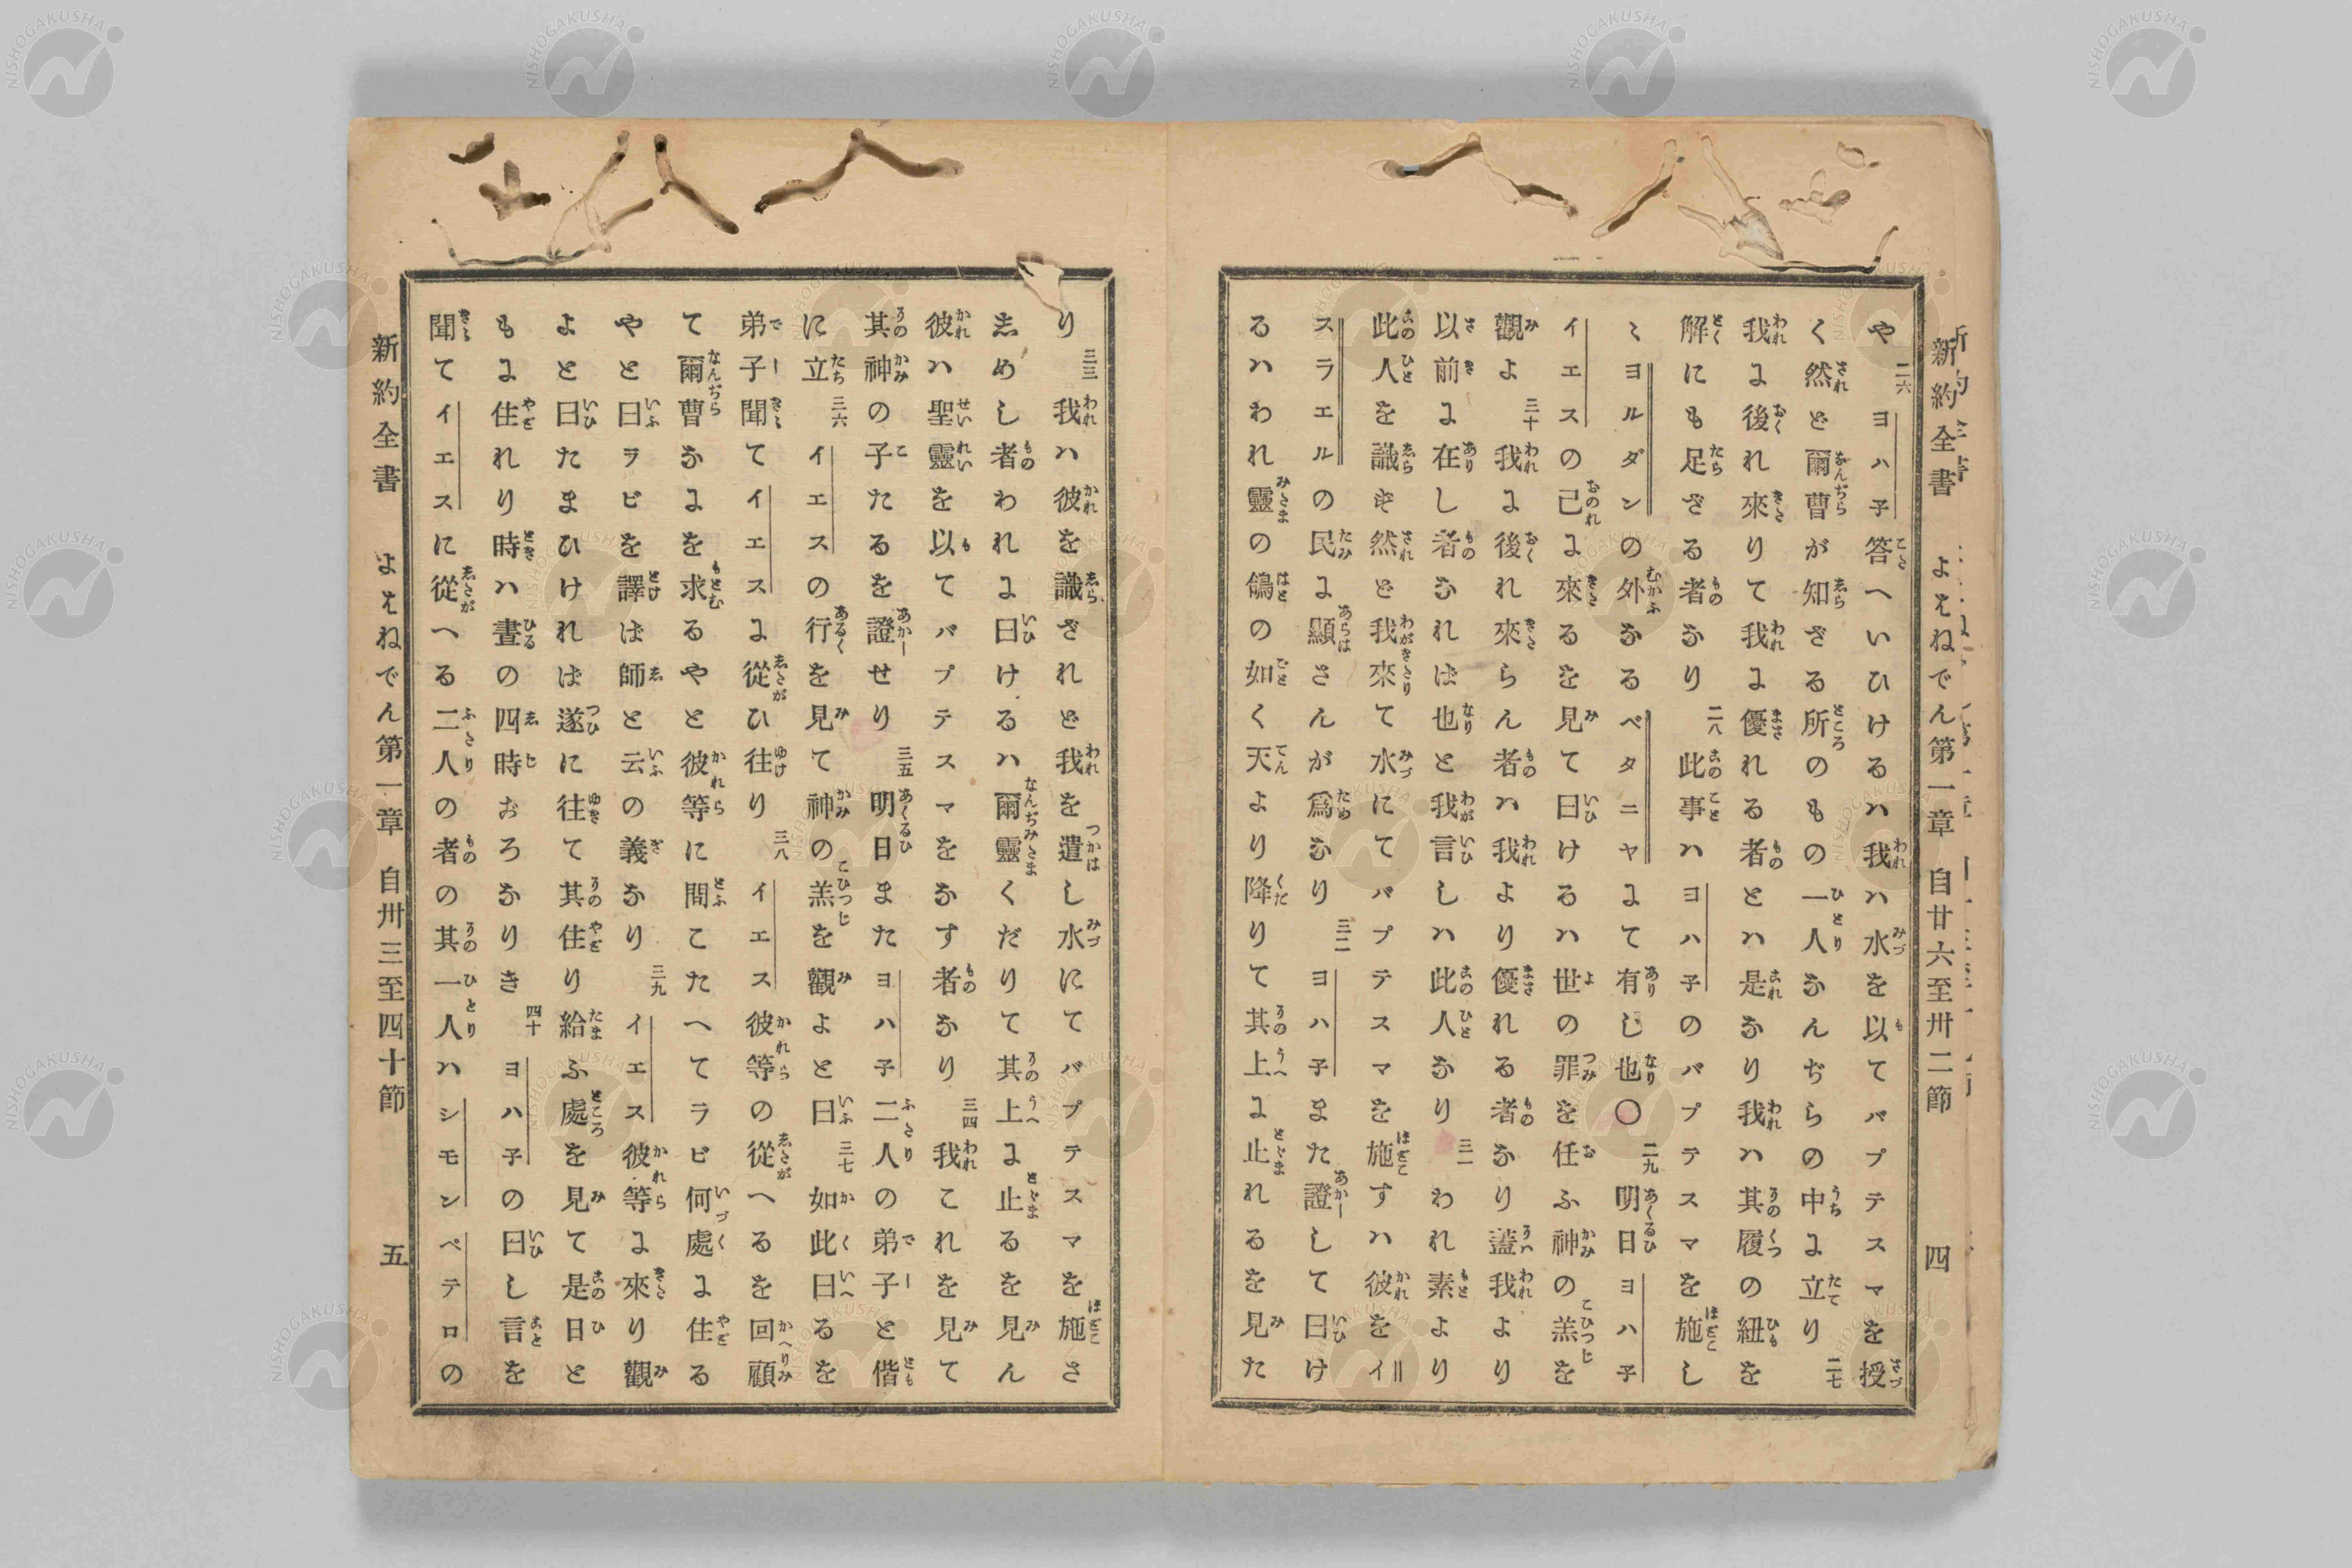 新約全書 よはねでん第一章 自廿六至卅二節 四
や 二六 ヨハ子答へいひけるハ我ハ水を以てバプテスマを授
く然ど爾曹が知ざる所のもの一人なんぢらの中に立り 二七
我に後れ來りて我に優れる者とハ是なり我ハ其履の紐を
解にも足ざる者なり 二八 此事ハヨハ子のバプテスマを施し
〻ヨルダンの外なるベタニヤにて有し也〇 二九 明日ヨハ子
イエスの己に來るを見て曰けるハ世の罪を任ふ神の羔を
觀よ 三十 我に後れ來らん者ハ我より優れる者なり蓋我より
以前に在し者なれば也と我言しハ此人なり 三一 われ素より
此人を識ず然ど我來て水にてバプテスマを施すハ彼をイ
スラエルの民に顯さんが爲なり 三二 ヨハ子また證して曰け
るハわれ靈の鴿の如く天より降りて其上に止れるを見た
り 三三 我ハ彼を識ざれど我を遣し水にてバプテスマを施さ
しめし者われに曰けるハ爾靈くだりて其上に止るを見ん
彼ハ聖靈を以てバプテスマをなす者なり 三四 我これを見て
其神の子たるを證せり 三五 明日またヨハ子二人の弟子と偕
に立 三六 イエスの行を見て神の羔を觀よと曰 三七 如此曰るを
弟子聞てイエスに從ひ往り 三八 イエス彼等の從へるを回顧
て爾曹なにを求るやと彼等に問こたへてラビ何處に住る
やと曰ヲビを譯ば師と云の義なり 三九 イエス彼等に來り觀
よと曰たまひければ遂に往て其住り給ふ處を見て是日と
もに住れり時ハ晝の四時おろなりき 四十 ヨハ子の曰し言を
聞てイエスに從へる二人の者の其一人ハシモンペテロの
新約全書 よはねでん第一章 自卅三至四十節 五